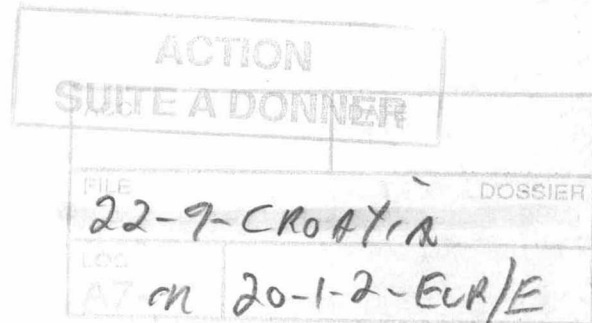 ACTION
SUITE A DONNER
FILE DOSSIER
22-9-CROATIA
LOC
A7 on 20-1-2-EUR/E